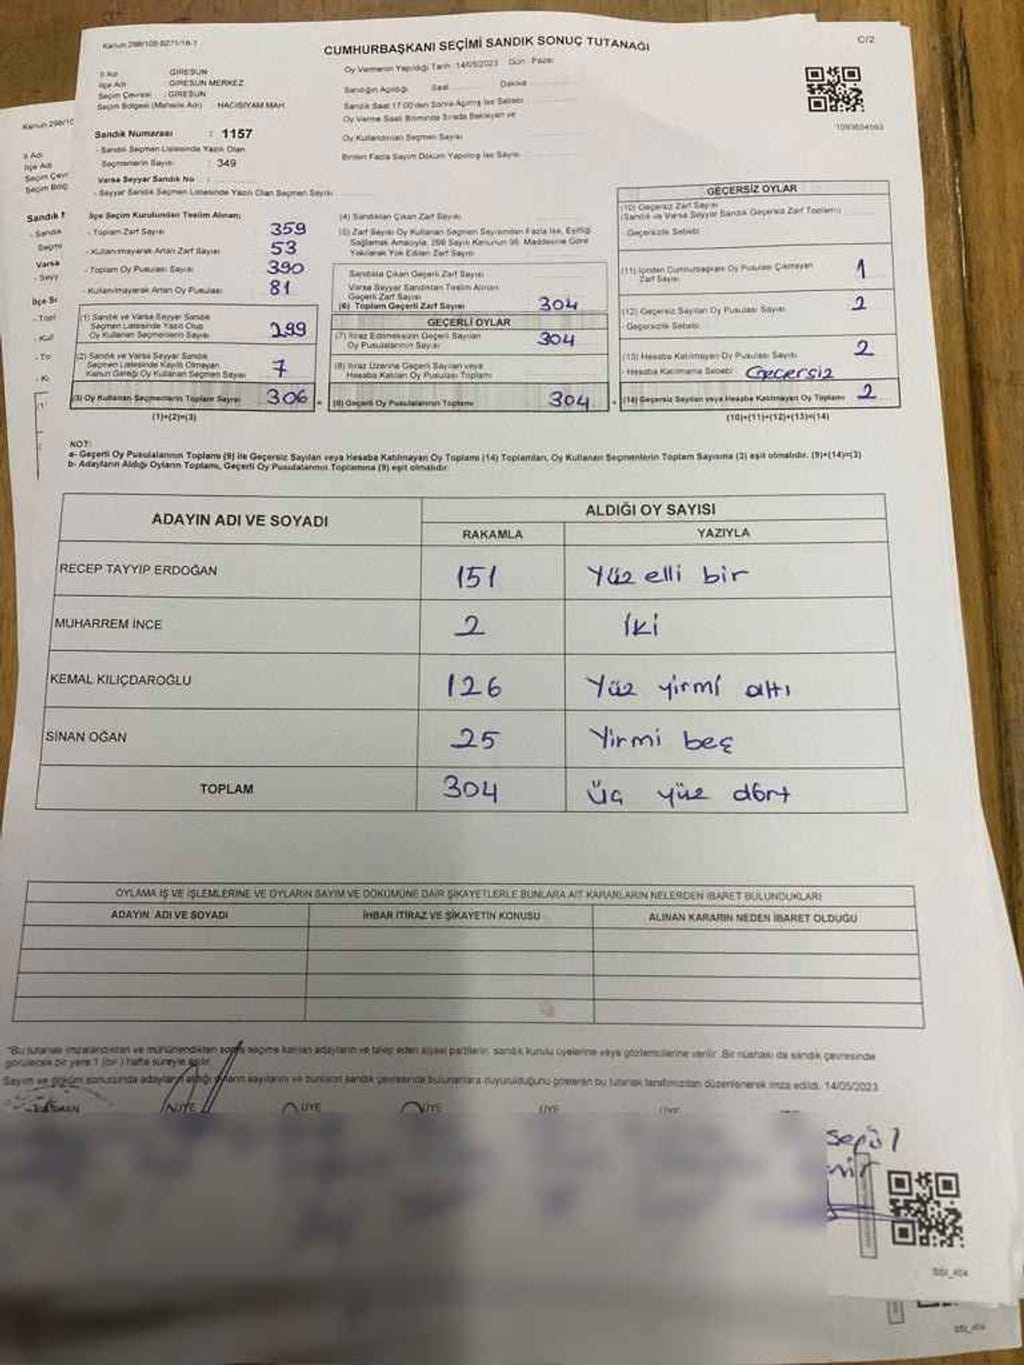 Kanun 298/105-6271/16-1
C/2
CUMHURBAŞKANI SEÇİMİ SANDIK SONUÇ TUTANAĞI
İl Adı : GİRESUN
İlçe Adı : GİRESUN MERKEZ
Seçim Çevresi : GİRESUN
Seçim Bölgesi (Mahalle Adı) : HACISİYAM MAH.
Oy Vermenin Yapıldığı Tarih :14/05/2023 Gün : Pazar
Sandığın Açıldığı Saat Dakika
Sandık Saat 17:00'den Sonra Açılmış İse Sebebi
Oy Verme Saati Bitiminde Sırada Bekleyen ve
Oy Kullandırılan Seçmen Sayısı
Birden Fazla Sayım Döküm Yapılmış İse Sayısı
1093604593
Sandık Numarası : 1157
- Sandık Seçmen Listesinde Yazılı Olan
Seçmenlerin Sayısı : 349
Varsa Seyyar Sandık No :
- Seyyar Sandık Seçmen Listesinde Yazılı Olan Seçmen Sayısı
İlçe Seçim Kurulundan Teslim Alınan;
- Toplam Zarf Sayısı 359
- Kullanılmayarak Artan Zarf Sayısı 53
- Toplam Oy Pusulası Sayısı 390
- Kullanılmayarak Artan Oy Pusulası 81
(1) Sandık ve Varsa Seyyar Sandık
Seçmen Listesinde Yazılı Olup
Oy Kullanan Seçmenlerin Sayısı 299
(2) Sandık ve Varsa Seyyar Sandık
Seçmen Listesinde Kayıtlı Olmayan
Kanun Gereği Oy Kullanan Seçmen Sayısı 7
(3) Oy Kullanan Seçmenlerin Toplam Sayısı 306
(1)+(2)=(3)
(4) Sandıktan Çıkan Zarf Sayısı
(5) Zarf Sayısı Oy Kullanan Seçmen Sayısından Fazla İse, Eşitliği
Sağlamak Amacıyla, 298 Sayılı Kanunun 98. Maddesine Göre
Yakılarak Yok Edilen Zarf Sayısı
Sandıkta Çıkan Geçerli Zarf Sayısı
Varsa Seyyar Sandıktan Teslim Alınan
Geçerli Zarf Sayısı
(6) Toplam Geçerli Zarf Sayısı 304
GEÇERLİ OYLAR
(7) İtiraz Edilmeksizin Geçerli Sayılan
Oy Pusulalarının Sayısı 304
(8) İtiraz Üzerine Geçerli Sayılan veya
Hesaba Katılan Oy Pusulası Toplamı
(9) Geçerli Oy Pusulalarının Toplamı 304
GEÇERSİZ OYLAR
(10) Geçersiz Zarf Sayısı
(Sandık ve Varsa Seyyar Sandık Geçersiz Zarf Toplamı)
Geçersizlik Sebebi:
(11) İçinden Cumhurbaşkanı Oy Pusulası Çıkmayan
Zarf Sayısı 1
(12) Geçersiz Sayılan Oy Pusulası Sayısı 2
- Geçersizlik Sebebi:
(13) Hesaba Katılmayan Oy Pusulası Sayısı 2
- Hesaba Katılmama Sebebi: Geçersiz
(14) Geçersiz Sayılan veya Hesaba Katılmayan Oy Toplamı 2
(10)+(11)+(12)+(13)=(14)
NOT:
a- Geçerli Oy Pusulalarının Toplamı (9) ile Geçersiz Sayılan veya Hesaba Katılmayan Oy Toplamı (14) Toplamları, Oy Kullanan Seçmenlerin Toplam Sayısına (3) eşit olmalıdır. (9)+(14)=(3)
b- Adayların Aldığı Oyların Toplamı, Geçerli Oy Pusulalarının Toplamına (9) eşit olmalıdır.
ADAYIN ADI VE SOYADI ALDIĞI OY SAYISI
RAKAMLA YAZIYLA
RECEP TAYYIP ERDOĞAN 151 Yüz elli bir
MUHARREM İNCE 2 İki
KEMAL KILIÇDAROĞLU 126 Yüz yirmi altı
SİNAN OĞAN 25 Yirmi beş
TOPLAM 304 Üç yüz dört
OYLAMA İŞ VE İŞLEMLERİNE VE OYLARIN SAYIM VE DÖKÜMÜNE DAİR ŞİKAYETLERLE BUNLARA AİT KARARLARIN NELERDEN İBARET BULUNDUKLARI
ADAYIN ADI VE SOYADI İHBAR İTİRAZ VE ŞİKAYETİN KONUSU ALINAN KARARIN NEDEN İBARET OLDUĞU
*Bu tutanak imzalandıktan ve mühürlendikten sonra seçime katılan adayların ve talep eden siyasi partilerin, sandık kurulu üyelerine veya gözlemcilerine verilir. Bir nüshası da sandık çevresinde
görülecek bir yere 1 (bir) hafta süreyle asılır.
Sayım ve döküm sonucunda adayların aldığı oyların sayılarını ve bunların sandık çevresinde bulunanlara duyurulduğunu gösteren bu tutanak tarafımızdan düzenlenerek imza edildi. 14/05/2023
ÜYE ÜYE ÜYE ÜYE ÜYE